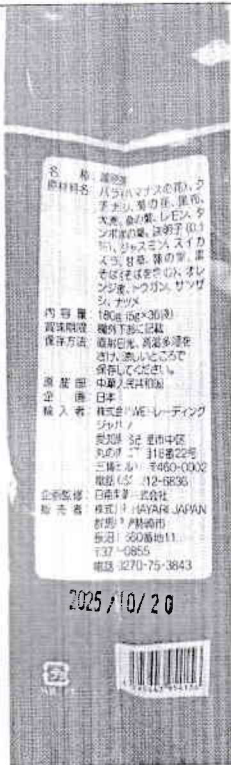 名 称:
原材料名: バラ(ハマナスの花)、ク
チナシ、菊の花、昆布、
大麦、桑の葉、レモン、タ
ンポポの葉、決明子(0.1
%)、ジャスミン、スイカ
ズラ、甘草、蓮の葉、
そば(そばを含む)、オレ
ンジ皮、トウガン、サンザ
シ、ナツメ
内 容 量: 180g (5g×36)
賞味期限: 欄外下部に記載
保存方法: 直射日光、高温多湿を
さけ、涼しいところで
保存してください。
原 産 国: 中華人民共和国
企 画: 日本
輸 入 者: 株式会 トレーディング
ジャパン
愛知県 市中区
丸の 18番22号
三博ビル 〒460-0002
電話 12-6836
企画監修: 日 会社
販 売 者: 株式 HAYARI JAPAN
群馬 崎市
長沼 560番地11
〒37 -0855
電話 0270-75-3843
2025/10/20
プラ